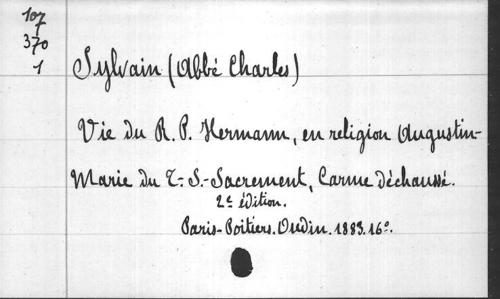 107
370
1
Sylvain (Abbé Charles)
Vie du R. P. Hermann, en religion Augustin-
Marie du T.-S.-Sacrement, Carme déchaussé.
2e édition.
Paris-Poitiers. Oudin. 1883. 16º.